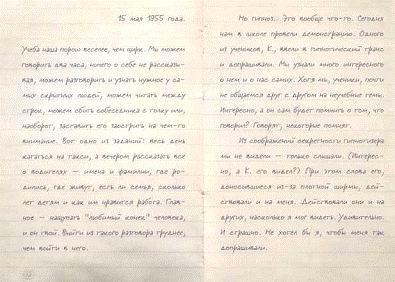 15 мая 1955 года.
Учеба наша порой веселее, чем цирк. Мы можем
говорить два часа, ничего о себе не рассказы-
вая, можем разговорить и узнать нужное у са-
мых скрытных людей, можем читать между
строк, можем сбить собеседника с толку или,
наоборот, заставить его заострить на чем-то
внимание. Вот одно из заданий: весь день
кататься на такси, а вечером рассказать все
о водителях – имена и фамилии, где ро-
дились, где живут, есть ли семья, сколько
лет детям и как им нравится работа. Глав-
ное – нащупать "любимый конек" человека,
и он твой. Выйти из такого разговора труднее,
чем войти в него.
Но гипноз.. Это вообще что-то. Сегодня
нам в школе провели демонстрацию. Одного
из учеников, К., ввели в гипнотический транс
и допрашивали. Мы узнали много интересного
о нем и о нас самих. Хотя мы, ученики, почти
не общаемся друг с другом на неучебные темы.
Интересно, а он сам будет помнить о том, что
говорил? Говорят, некоторые помнят.
Из соображений секретности гипнотизера
мы не видели – только слышали. (Интерес-
но, а К. его видел?) При этом слова его,
доносившиеся из-за плотной ширмы, дей-
ствовали и на меня. Действовали они и на
других, насколько я мог видеть. Удивительно.
И страшно. Не хотел бы я, чтобы меня так
допрашивали.